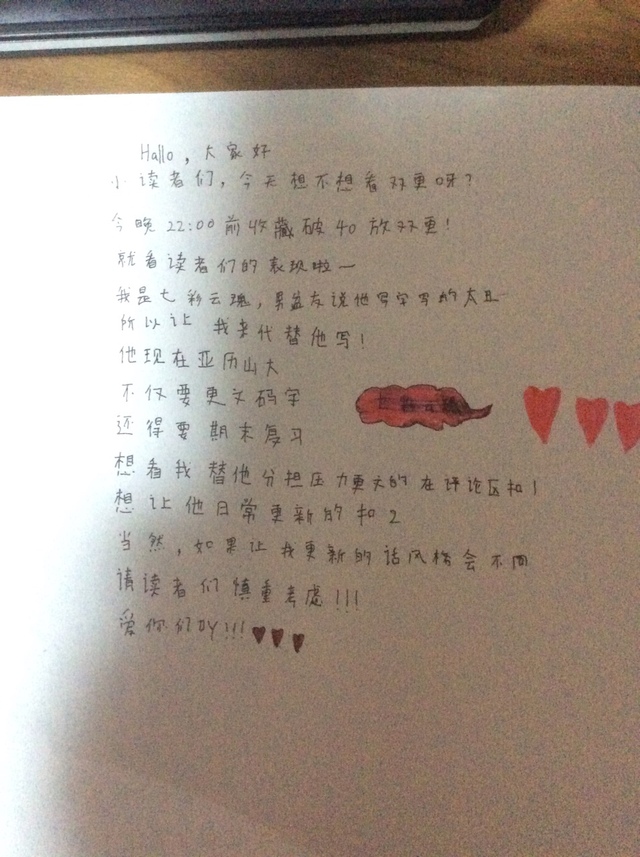 Hallo，大家好
小读者们，今天想不想看双更呀？
今晚22:00前收藏破40放双更！
就看读者们的表现啦一
我是七彩云瑰，男盆友说他写字写的太丑
所以让我来代替他写！
他现在亚历山大
不仅要更文码字
还得要期末复习
想看我替他分担压力更文的在评论区扣1
想让他日常更新的扣2
当然，如果让我更新的话风格会不同
请读者们慎重考虑！！！
爱你们吖！！！
七彩云瑰